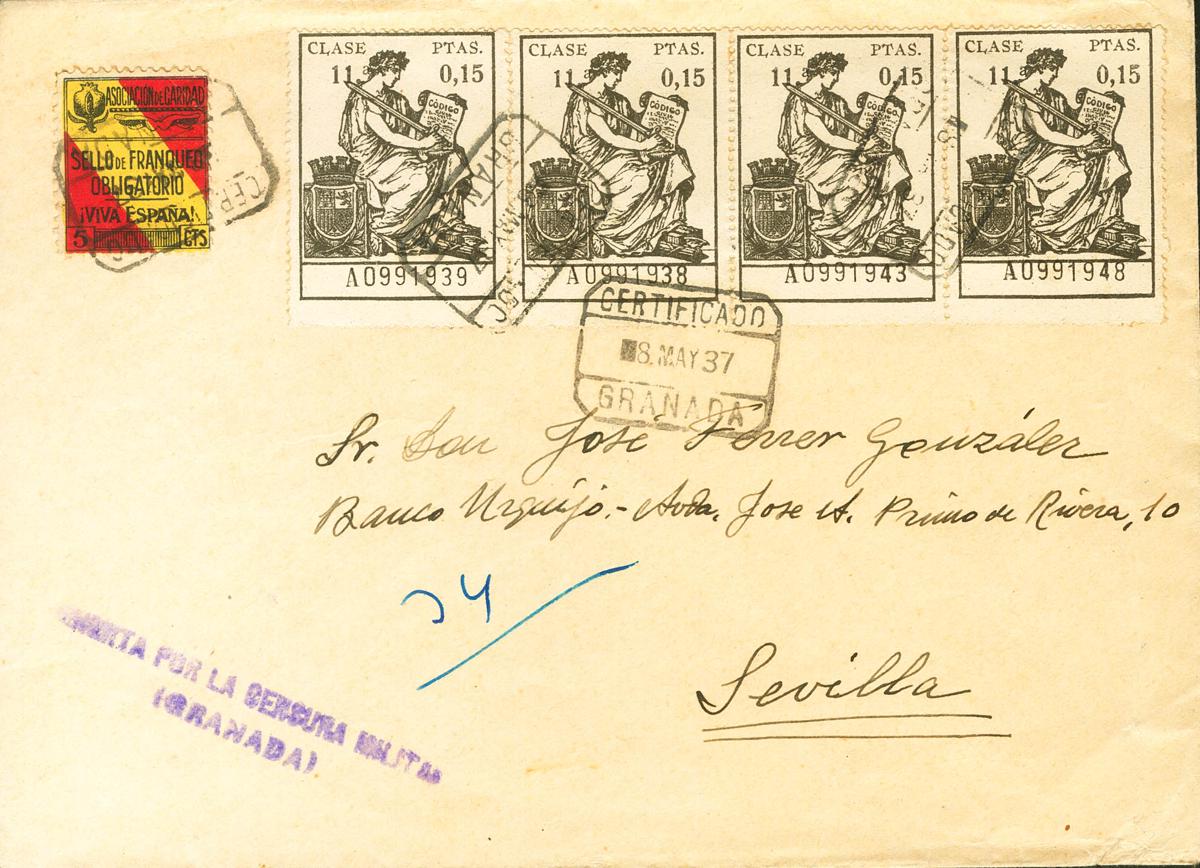 ASOCIACION DE CARIDAD
SELLO DE FRANQUEO
OBLIGATORIO
¡VIVA ESPAÑA!
5 CTS
CLASE PTAS.
11ª 0,15
CÓDIGO
A0991939
CLASE PTAS.
11ª 0,15
CÓDIGO
A0991938
CLASE PTAS.
11ª 0,15
CÓDIGO
A0991943
CLASE PTAS.
11ª 0,15
CÓDIGO
A0991948
CERTIFICADO
8.MAY37
GRANADA
Sr. Don José Ferrer González
Banco Urquijo.- Avda. Jose A. Primo de Rivera, 10
34
Sevilla
POR LA CENSURA MILITAR
(GRANADA)